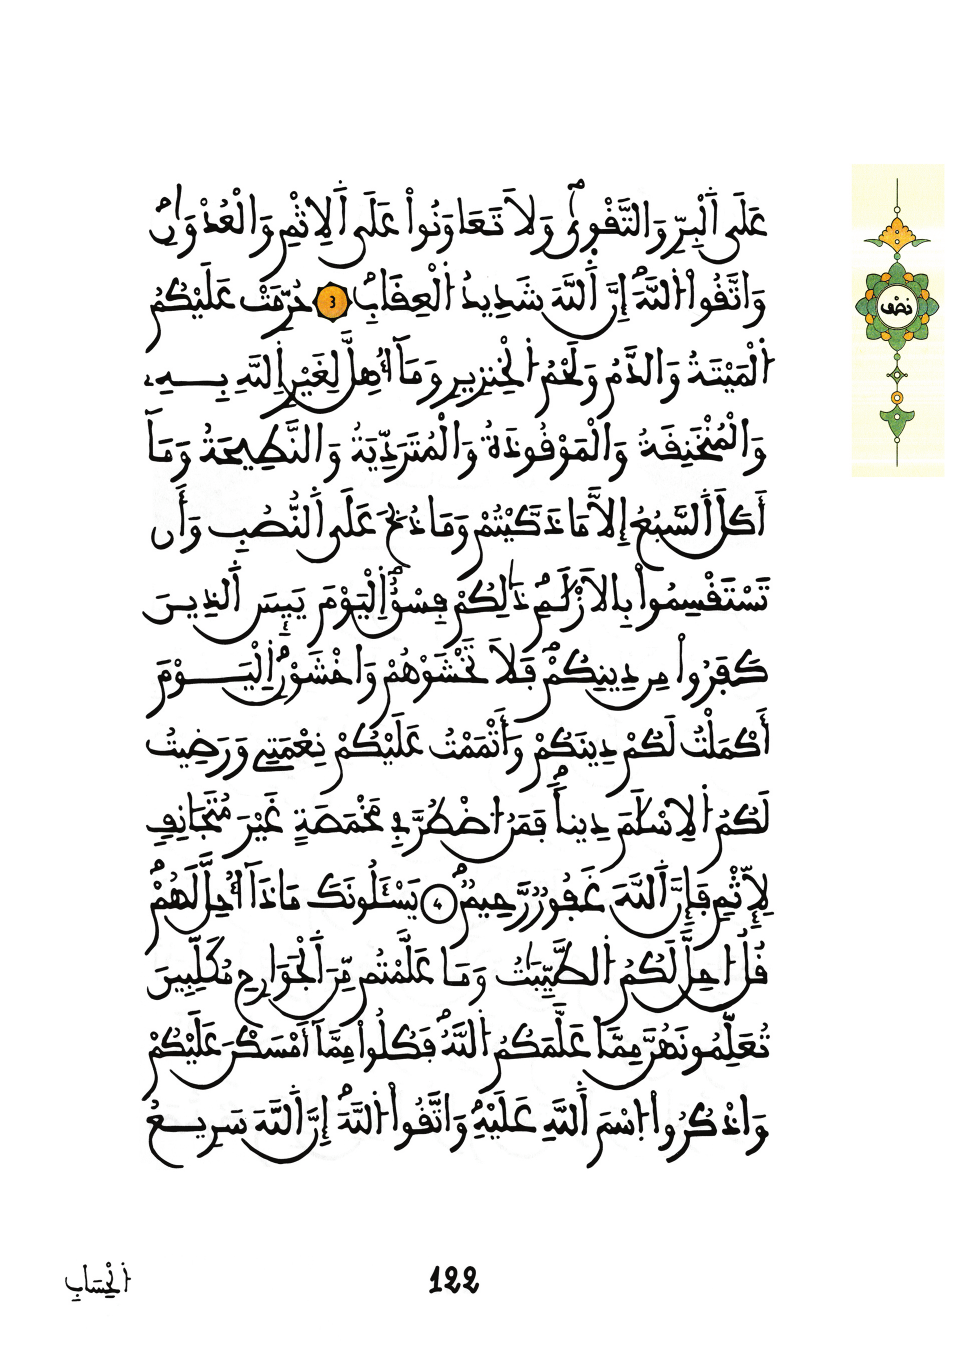 عَلَى اَ۬لْبِرِّ وَالتَّقْو۪ىٰۖ وَلَا تَعَاوَنُواْ عَلَى اَ۬لِاثْمِ وَالْعُدْوَٰنِۖ
وَاتَّقُواْ اُ۬للَّهَۖ إِنَّ اَ۬للَّهَ شَدِيدُ اُ۬لْعِقَابِۖ 3 حُرِّمَتْ عَلَيْكُمُ
اُ۬لْمَيْتَةُ وَالدَّمُ وَلَحْمُ اُ۬لْخِنزِيرِ وَمَآ أُهِلَّ لِغَيْرِ اِ۬للَّهِ بِهِۦ
وَالْمُنْخَنِقَةُ وَالْمَوْقُوذَةُ وَالْمُتَرَدِّيَةُ وَالنَّطِيحَةُ وَمَآ
أَكَلَ اَ۬لسَّبُعُ إِلَّا مَا ذَكَّيْتُمْ وَمَا ذُبِحَ عَلَى اَ۬لنُّصُبِ وَأَن
تَسْتَقْسِمُواْ بِالَازْلَٰمِۖ ذَٰلِكُمْ فِسْقٌۖ اِ۬لْيَوْمَ يَئِسَ اَ۬لذِينَ
كَفَرُواْ مِن دِينِكُمْۖ فَلَا تَخْشَوْهُمْ وَاخْشَوْنِۖ اِ۬لْيَوْمَ
أَكْمَلْتُ لَكُمْ دِينَكُمْ وَأَتْمَمْتُ عَلَيْكُمْ نِعْمَتِے وَرَضِيتُ
لَكُمُ اُ۬لِاسْلَٰمَ دِيناٗۖ فَمَنُ اُ۟ضْطُرَّ فِے مَخْمَصَةٍ غَيْرَ مُتَجَانِفٖ
لِّإِثْمٖ فَإِنَّ اَ۬للَّهَ غَفُورٞ رَّحِيمٞۖ 4 يَسْـَٔلُونَكَ مَاذَآ أُحِلَّ لَهُمْۖ
قُلُ ا۟حِلَّ لَكُمُ اُ۬لطَّيِّبَٰتُ وَمَا عَلَّمْتُم مِّنَ اَ۬لْجَوَارِحِ مُكَلِّبِينَ
تُعَلِّمُونَهُنَّ مِمَّا عَلَّمَكُمُ اُ۬للَّهُۖ فَكُلُواْ مِمَّآ أَمْسَكْنَ عَلَيْكُمْ
وَاذْكُرُواْ اُ۪سْمَ اَ۬للَّهِ عَلَيْهِۖ وَاتَّقُواْ اُ۬للَّهَۖ إِنَّ اَ۬للَّهَ سَرِيعُ
نصف
اُ۬لْحِسَابِ
122